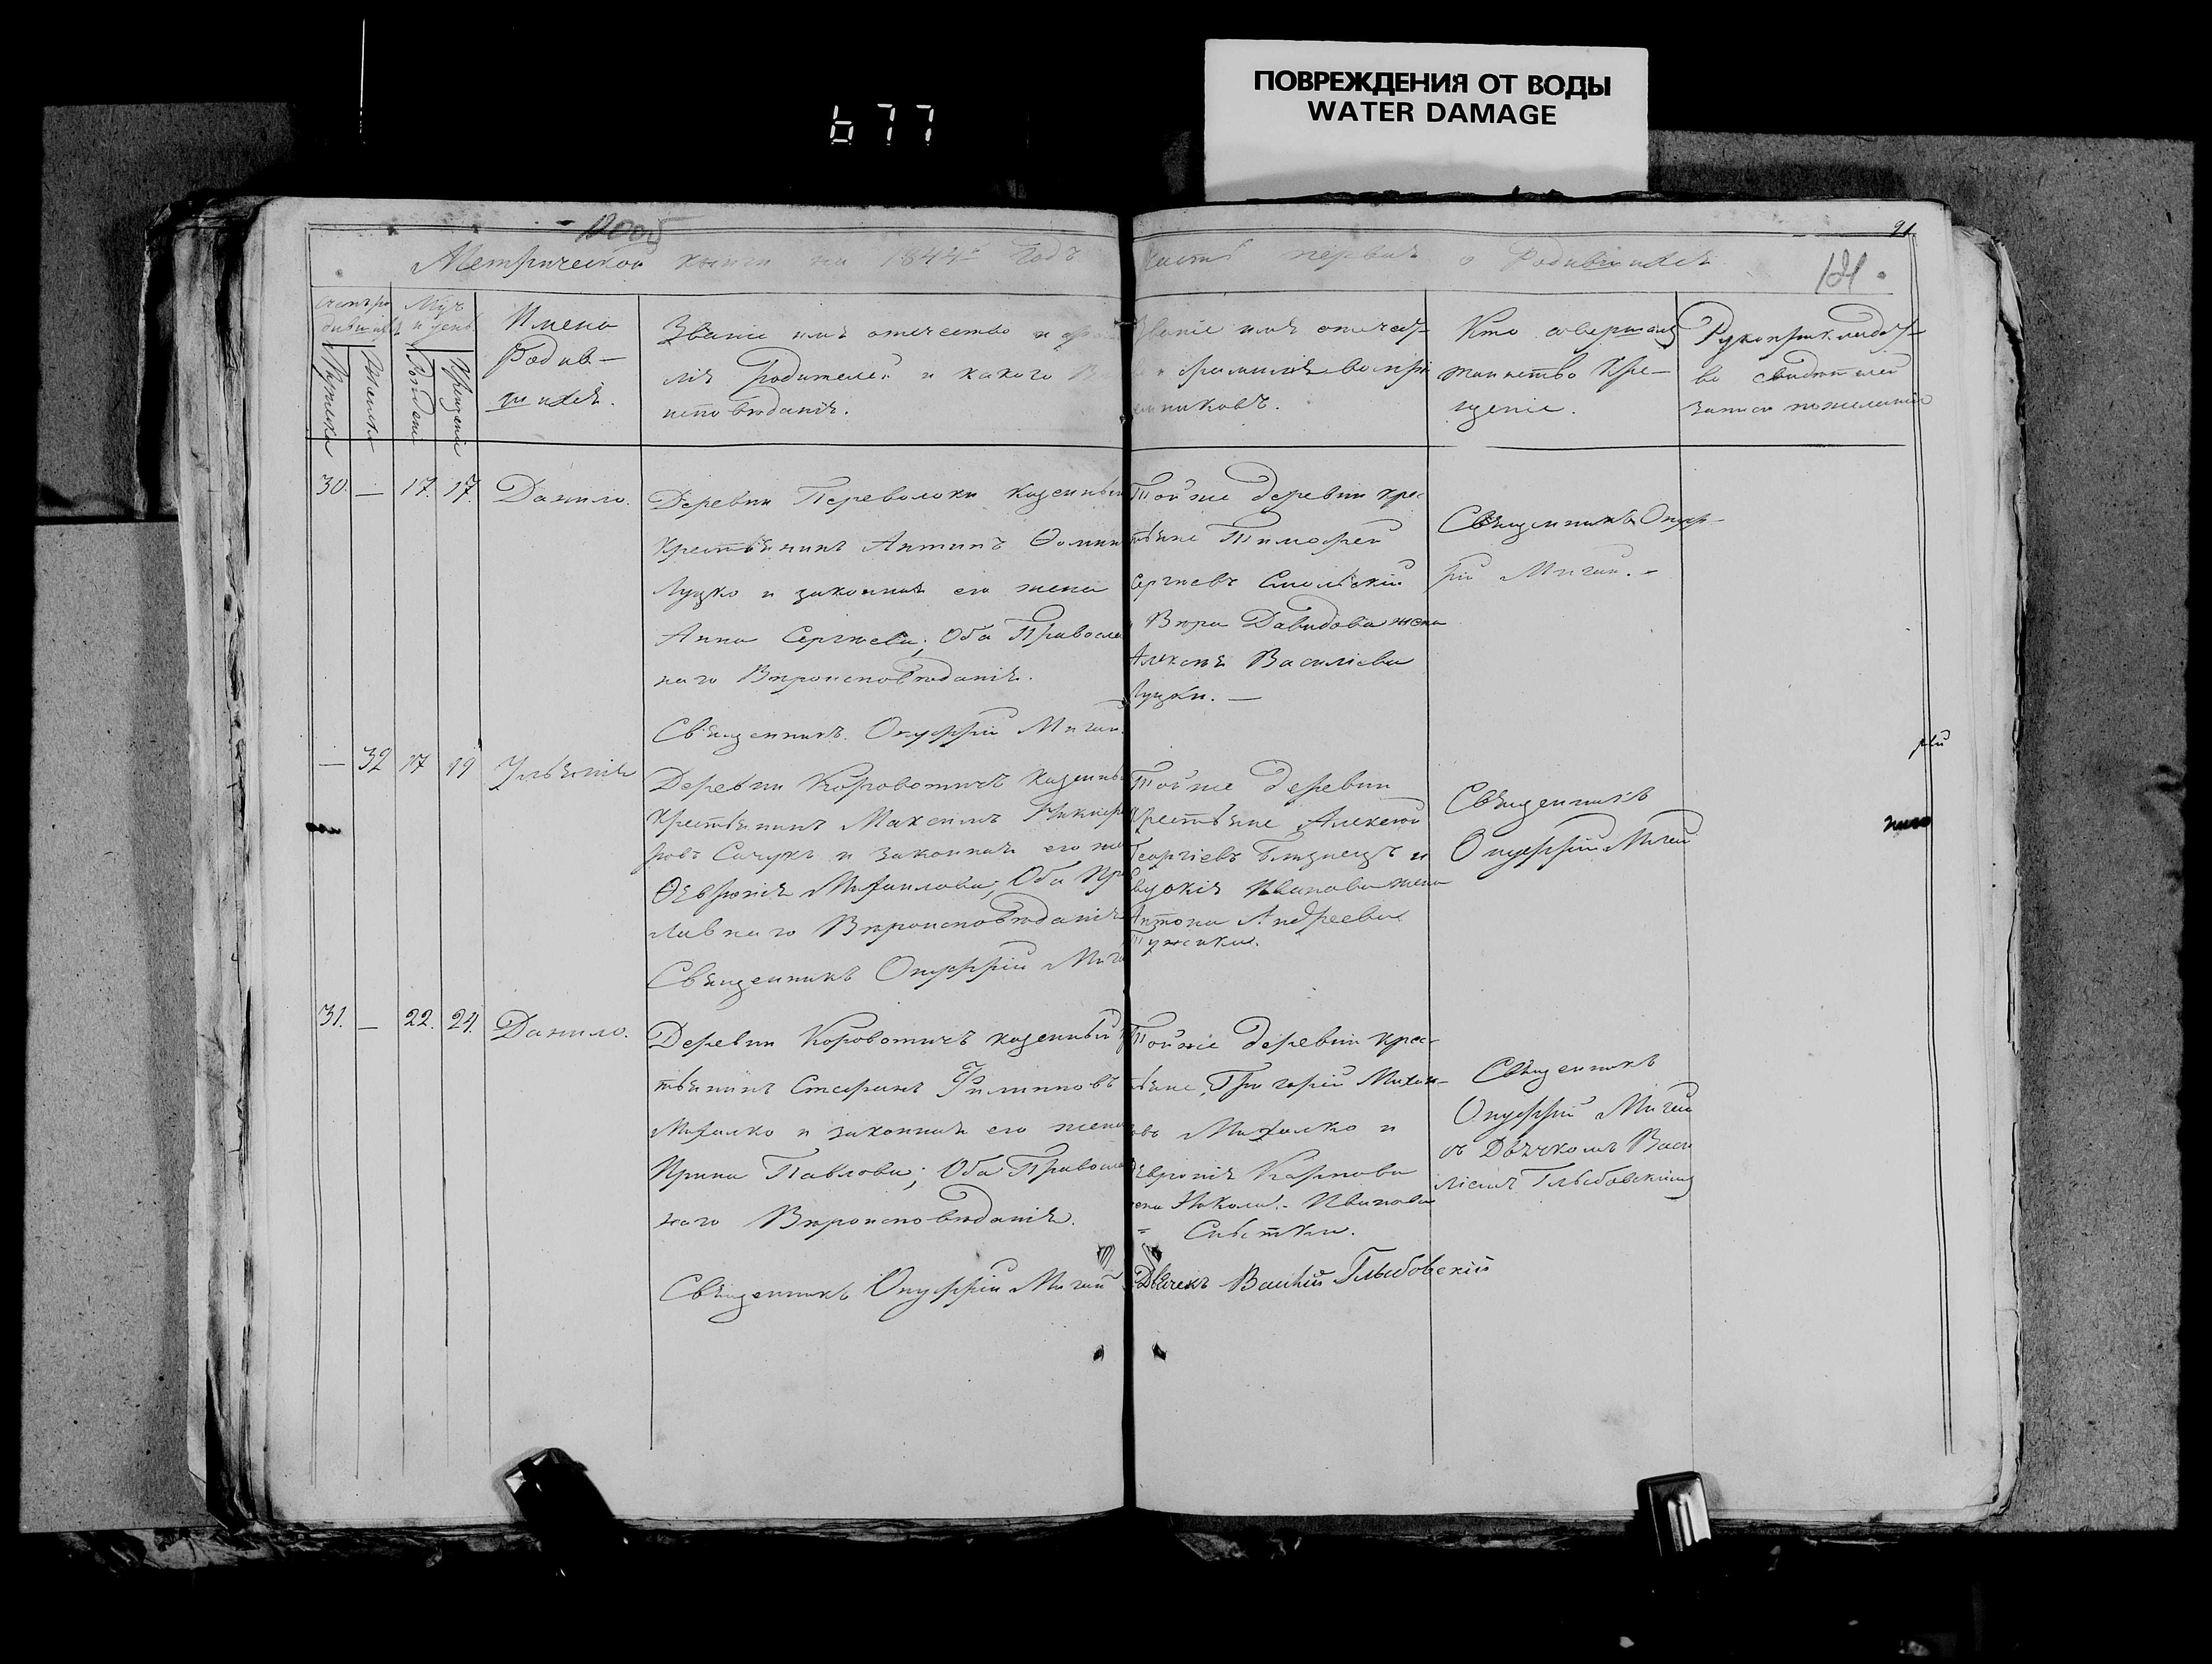 677
ПОВРЕЖДЕНИЯ ОТ ВОДЫ
WATER DAMAGE
91
121.
Метрической книги на 1844й годъ
часть первая о Родившихся
Мужеска
Женска
Рожденія
Крещенія
Имена
Родив-
шихся.
Званіе имя отечество и
лія Родителей и какого
исповѣданія.
Званіе имя отечест-
фамилія воспрі
емниковъ.
Кто совершалъ
таинство Кре-
щенія.
Рукоприкладст-
во свидѣтелей
записи по желанію
30. — 17. 17. Данило.
Деревни Переволоки казенный
крестьянинъ Антипъ Ѳомин
Луцко и законная его жена
Анна Сергѣева; Оба Правосла
наго Вѣроисповѣданія.
Священникъ Онуффій Мигай
Той же деревни крес
тьяне Тимофей
Сергѣевъ Смольскій
Вѣра Давидова жена
Алексѣя Василіева
Луцки. —
Священникъ Онуф-
рій Мигай. -
— 32 17 19 Ульянія
Деревни Коровотичъ казенный
крестьянинъ Максимъ Никифо
ровъ Сачукъ и законная его же
Ѳевронія Михаилова; Оба Пр
лавнаго Вѣроисповѣданія
Священникъ Онуффій Мига
Той же деревни
Крестьяне Алексѣй
Георгіевъ Близнецъ и
Евдокія Иванова жена
Антона Андреева
Священникъ
Онуффій Мигай
31. — 22. 24. Данило.
Деревни Коровотичъ казенный
тьянинъ Стефанъ Филиповъ
Михалко и законная его жена
Ирина Павлова; Оба Правосла
наго Вѣроисповѣданія.
Священникъ Онуффій Мигай
Той же деревни крес-
тьяне, Григорій Михаи-
овъ Михалко и
Ѳевронія Карпова
ена Николая Иванова
Дьячекъ Василій Глыбовскій
Священникъ
Онуффій Мигай
съ Дьячкомъ Васи
ліемъ Глыбовскимъ